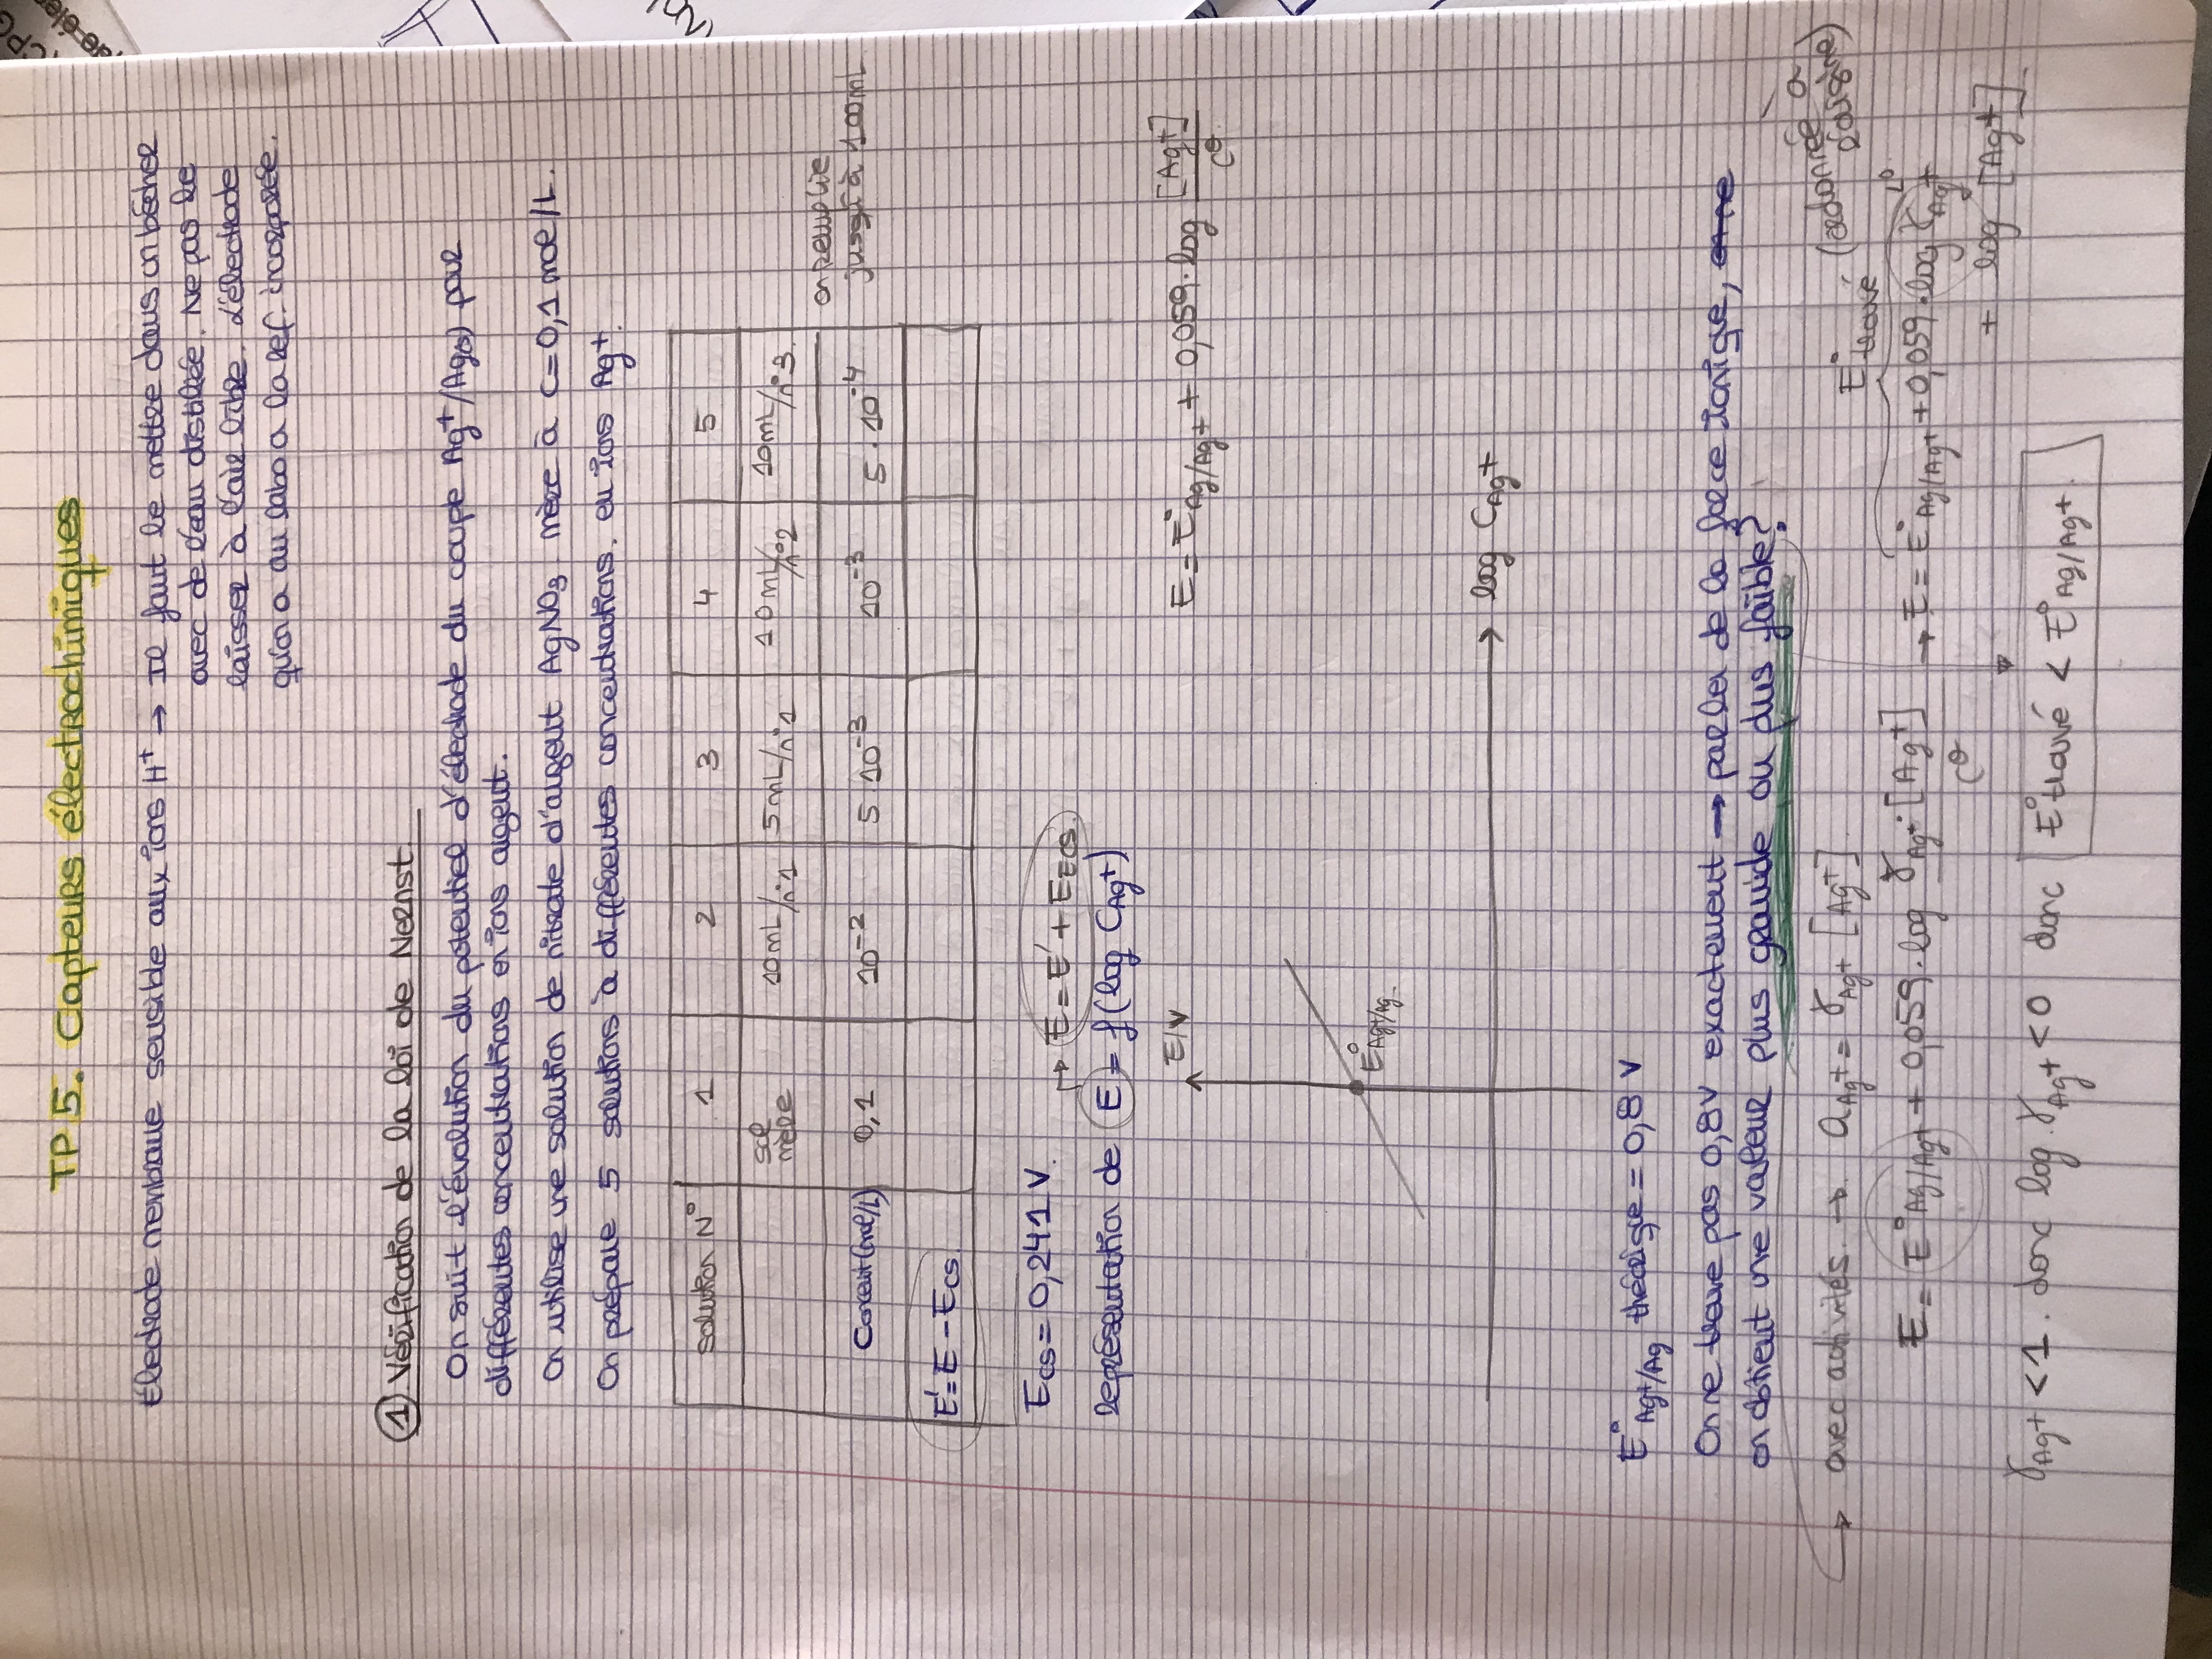 TP 5. Capteurs électrochimiques
Électrode membrane sensible aux ions H⁺ → Il faut le mettre dans un bécher
avec de l'eau distillée. Ne pas le
laisser à l'air libre. L'électrode
qu'on a au labo a la ref. incorporée.
① Vérification de la loi de Nernst
On suit l'évolution du potentiel d'électrode du couple Ag⁺/Ag(s) pour
différentes concentrations en ions argent.
On utilise une solution de nitrate d'argent AgNO₃ mère à C=0,1 mol/L.
On prépare 5 solutions à différentes concentrations. en ions Ag⁺.
solution N° 1 2 3 4 5
sol mère 10mL/n°1 5mL/n°1 10mL/n°2 10mL/n°3.
Concent(mol/L) 0,1 10⁻² 5 10⁻³ 10⁻³ 5 . 10⁻⁴
on remplie
jusqu'à 100mL
E'=E-ECS
ECS = 0,241 V.
→ E = E' + EECS.
Représentation de E = f(log CAg+)
E/V
E = E°Ag/Ag+ + 0,059.log [Ag⁺]/C°
E°Ag+/Ag
log CAg+
E°Ag+/Ag théorique = 0,8 V
On ne trouve pas 0,8V exactement → parler de la force ionique,
on obtient une valeur plus grande ou plus faible?
avec activités. → aAg+ = γAg+ [Ag⁺]
E°trouvé (ordonnée à l'origine)
E = E°Ag/Ag+ + 0,059.log γAg+.[Ag⁺]/C° → E = E°Ag/Ag+ + 0,059.log γAg+
<0
+ log [Ag⁺]
γAg+ <1. donc log.γAg+ <0 donc E°trouvé < E°Ag/Ag+.